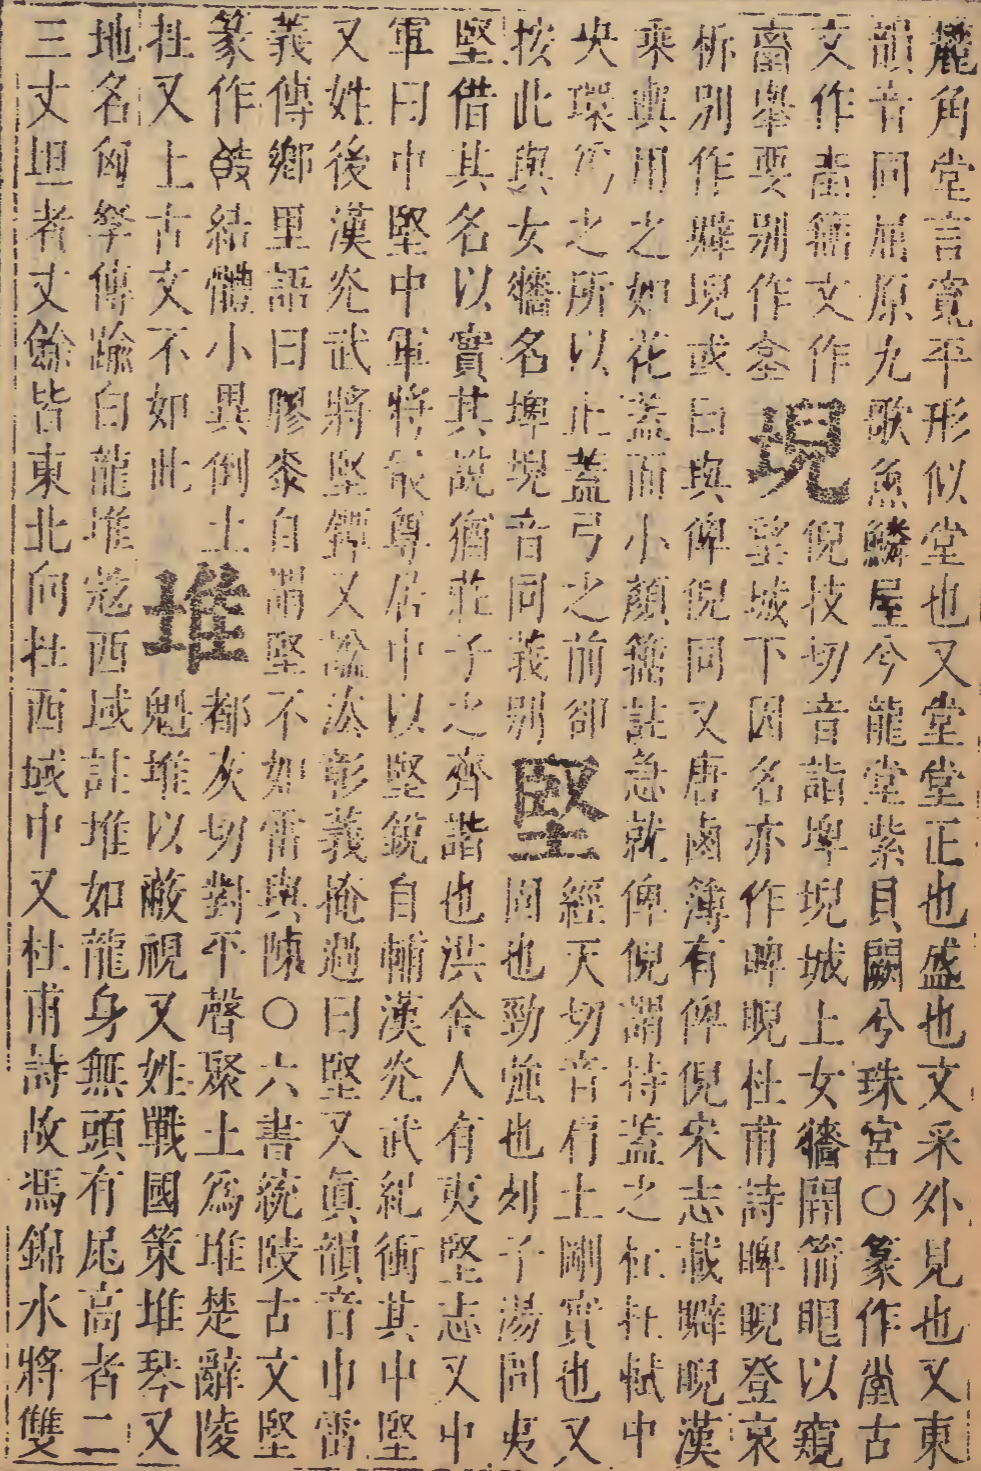 麓角堂言寬平形似堂也又堂堂正也盛也文采外見也又東
韻音同屈原九歌魚鱗屋兮龍堂紫貝闕兮珠宮○篆作堂古
文作㙶籀文作 堄 倪技切音詣埤堄城上女牆開箭眼以窺
畜舉要别作 望城下因名亦作睥睨杜甫詩睥睨登哀
柝别作壀堄或曰與俾倪同又唐鹵簿有俾倪宋志載㿙睨漢
乘輿用之如花蓋而小顏籀註急就俾倪謂持蓋之杠杜軾中
央環爲之所以止蓋弓之前卻 經天切音肩土剛實也又
按此與女牆名埤堄音同義别 堅 固也勁強也列子湯問夷
堅借其名以實其說猶莊子之齊諧也洪舍人有夷堅志又中
軍曰中堅中軍將最尊居中以堅銳自輔漢光武紀衝其中堅
又姓後漢光武將堅鐔又諡法彰義掩過曰堅又眞韻音巾雷
義傳鄉里語曰膠桼自謂堅不如雷與陳○六書統䧘古文堅
篆作 結體小異倒土 都灰切對平聲聚土爲堆楚辭陵
杜又上古文不如此 堆 魁堆以蔽視又姓戰國策堆琴又
地名匈奴傳踰白龍堆 西域註堆如龍身無頭有尾高者二
三丈坦者丈餘皆東北向杜西域中又杜甫詩故馮錦水將雙